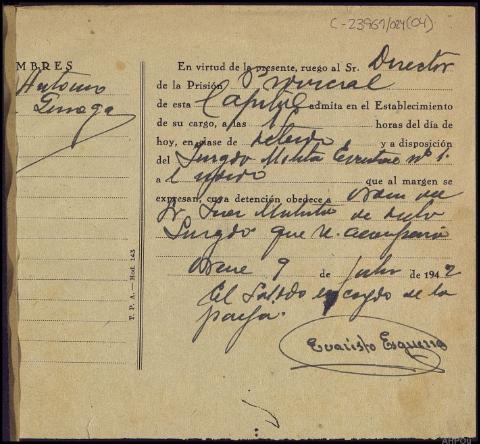 C-23967/024(04)
MBRES
Antonio
En virtud de la presente, ruego al Sr. Director
de la Prisión Provincial
de esta Capital admita en el Establecimiento
de su cargo, a las horas del día de
hoy, en clase de detenido y a disposición
del Juzgado Militar nº 1.
a que al margen se
expresan, cuya detención obedece a Orden del
Sr. Juez de dicho
Juzgado que se acompaña
9 de Julio de 1942
El encargado de la
pareja.
Evaristo Esguerra
T. P. A.—Mod. 143
AHPOU